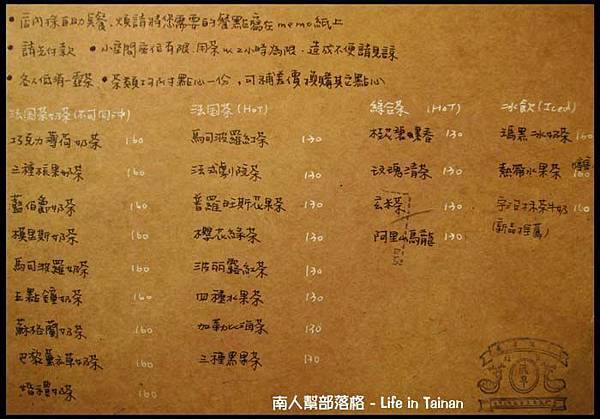 • 店內採自助點餐、煩請將您需要的餐點寫在memo紙上
• 請先付款 • 小空間座位有限、用茶以2小時為限、造成不便請見諒
• 各人低消一壺茶 • 茶類均附點心一份,可補差價換購其它點心
法國茶奶茶(不可回沖)
巧克力薄荷奶茶 160
三種棕果奶茶 160
藍伯爵奶茶 160
模里斯奶茶 160
馬可波羅奶茶 160
五點鐘奶茶 160
蘇格蘭奶茶 160
巴黎薰衣草奶茶 160
婚禮奶茶 160
法国茶 (HOT)
馬可波羅紅茶 130
法式劇院茶 130
普羅旺斯花果茶 130
櫻花綠茶 130
波麗露紅茶 130
四種水果茶 130
加勒比海茶 130
三種黑果茶 130
綜合茶 (HOT)
桂花蘋果香 130
玫瑰清茶 130
玄米茶 130
阿里山烏龍 130
冰飲 (Iced)
瑪黑冰奶茶 160
熱帶水果茶 160
宇治抹茶牛奶 160
(新品推薦)
南人幫部落格 - Life in Tainan